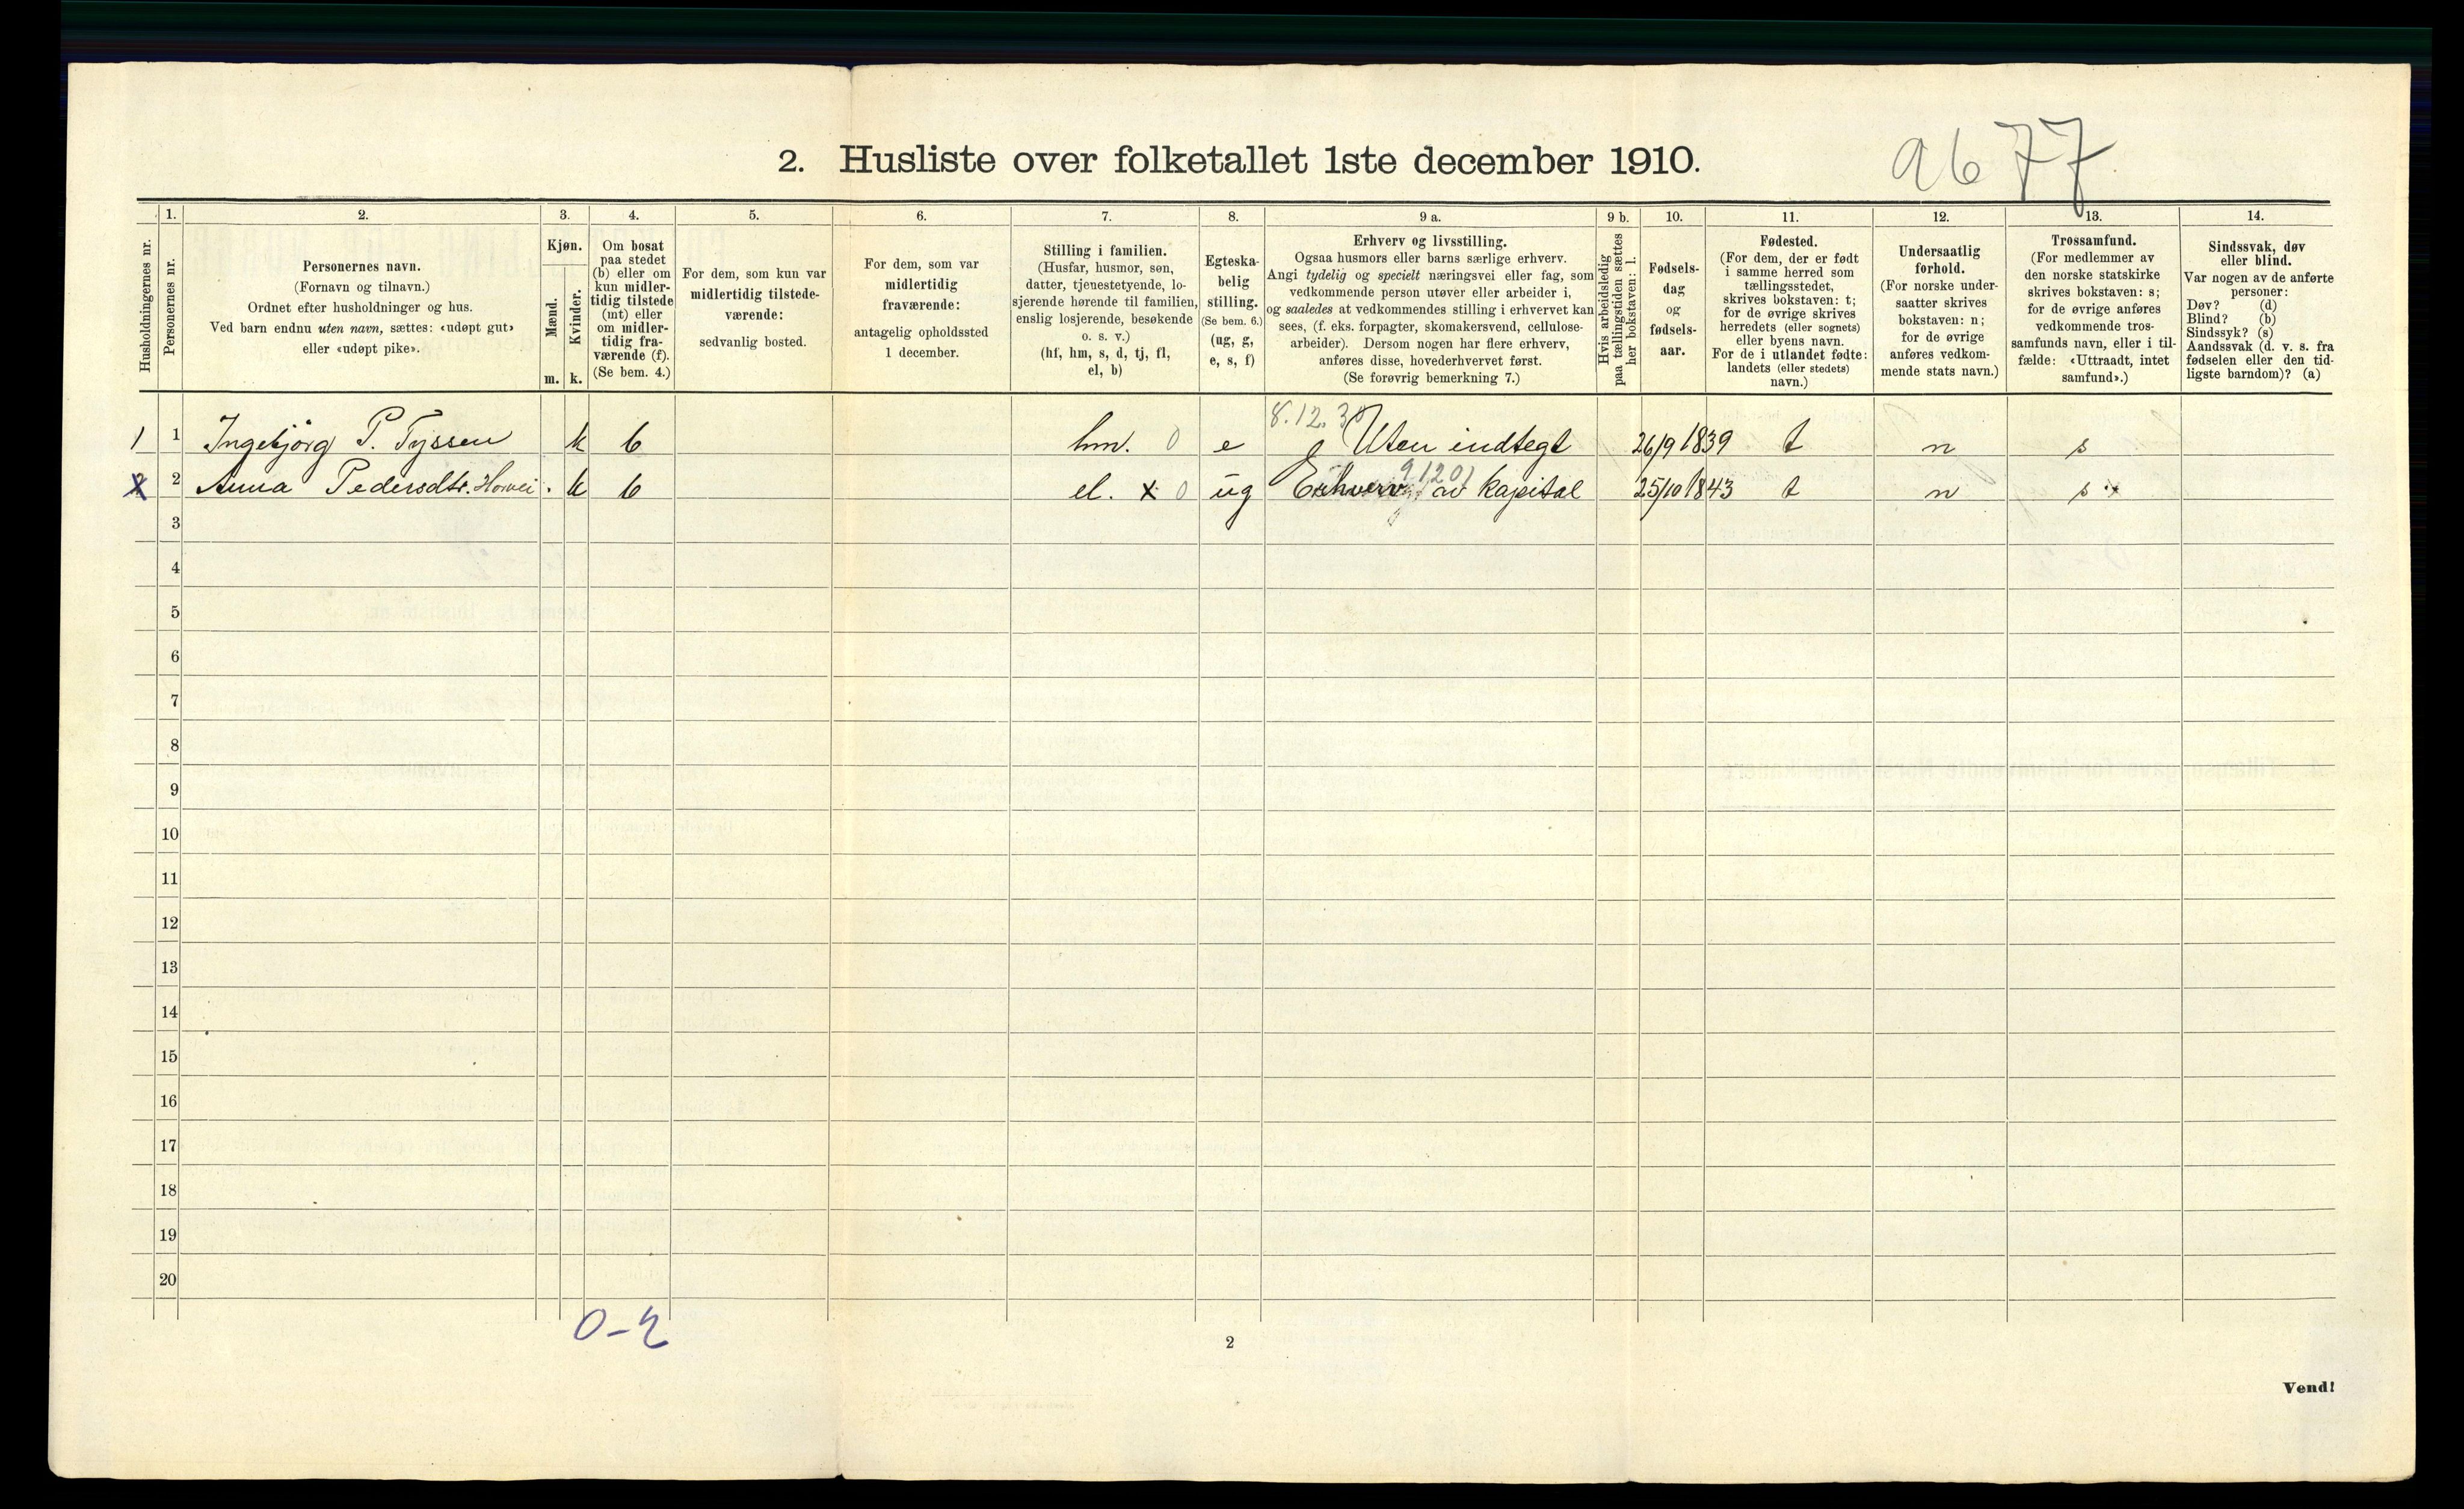 9677
2. Husliste over folketallet 1ste december 1910.
Husholdningernes nr.
1. Personernes nr.
2. Personernes navn.
(Fornavn og tilnavn.)
Ordnet efter husholdninger og hus.
Ved barn endnu uten navn, sættes: «udøpt gut»
eller «udøpt pike».
3. Kjøn.
Mænd. m.
Kvinder. k.
4. Om bosat
paa stedet
(b) eller om
kun midler-
tidig tilstede
(mt) eller
om midler-
tidig fra-
værende (f).
(Se bem. 4.)
5. For dem, som kun var
midlertidig tilstede-
værende:
sedvanlig bosted.
6. For dem, som var
midlertidig
fraværende:
antagelig opholdssted
1 december.
7. Stilling i familien.
(Husfar, husmor, søn,
datter, tjenestetyende, lo-
sjerende hørende til familien,
enslig losjerende, besøkende
o. s. v.)
(hf, hm, s, d, tj, fl,
el, b)
8. Egteska-
belig
stilling.
(Se bem. 6.)
(ug, g,
e, s, f)
9 a. Erhverv og livsstilling.
Ogsaa husmors eller barns særlige erhverv.
Angi tydelig og specielt næringsvei eller fag, som
vedkommende person utøver eller arbeider i,
og saaledes at vedkommendes stilling i erhvervet kan
sees, (f. eks. forpagter, skomakersvend, cellulose-
arbeider). Dersom nogen har flere erhverv,
anføres disse, hovederhvervet først.
(Se forøvrig bemerkning 7.)
9 b. Hvis arbeidsledig
paa tællingstiden sættes
her bokstaven: l.
10. Fødsels-
dag
og
fødsels-
aar.
11. Fødested.
(For dem, der er født
i samme herred som
tællingsstedet,
skrives bokstaven: t;
for de øvrige skrives
herredets (eller sognets)
eller byens navn.
For de i utlandet fødte:
landets (eller stedets)
navn.)
12. Undersaatlig
forhold.
(For norske under-
saatter skrives
bokstaven: n;
for de øvrige
anføres vedkom-
mende stats navn.)
13. Trossamfund.
(For medlemmer av
den norske statskirke
skrives bokstaven: s;
for de øvrige anføres
vedkommende tros-
samfunds navn, eller i til-
fælde: «Uttraadt, intet
samfund».)
14. Sindssvak, døv
eller blind.
Var nogen av de anførte
personer:
Døv? (d)
Blind? (b)
Sindssyk? (s)
Aandssvak (d. v. s. fra
fødselen eller den tid-
ligste barndom)? (a)
8.12.30
1 1 Ingebjörg P. Tyssen k b hm. 0 e Uten indtegt 26/9 1839 t n s
91201
x 2 Anna Pedersdtr. Horvei. k b el. x 0 ug Erhverv av kapital 25/10 1843 t n s
3
4
5
6
7
8
9
10
11
12
13
14
15
16
17
18
19
20
0-2
2
Vend!